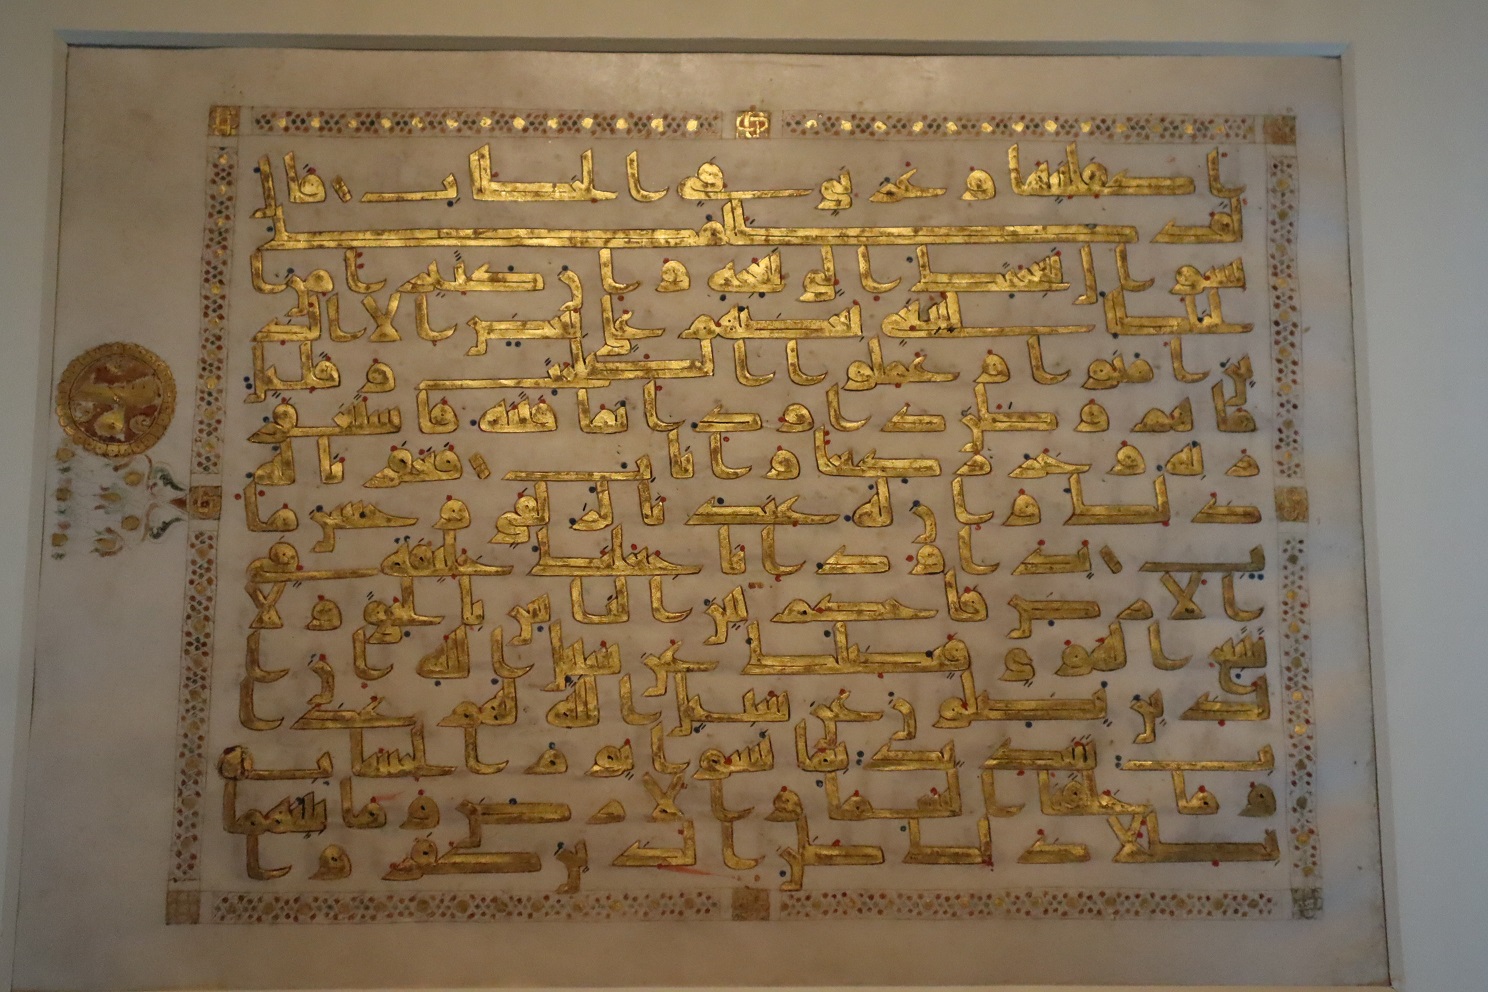 اكفلنيها وعزني في الخطاب قال
لقد ظلمك
بسوال نعجتك الى نعاجه وان كثيرا من ا
لخلطا ليبغي بعضهم على بعض الا الذ
ين امنوا وعملوا الصلحت وقليل
ما هم وظن داود انما فتنه فاستغفر
ربه وخر راكعا واناب فغفرنا له
ذلك وان له عندنا لزلفى وحسن ما
ب يداود انا جعلنك خليفة في
الارض فاحكم بين الناس بالحق ولا
تتبع الهوى فيضلك عن سبيل الله ان ا
لذين يضلون عن سبيل الله لهم عذا
ب شديد بما نسوا يوم الحساب
وما خلقنا السما والارض وما بينهما
بطلا ذلك ظن الذين كفروا